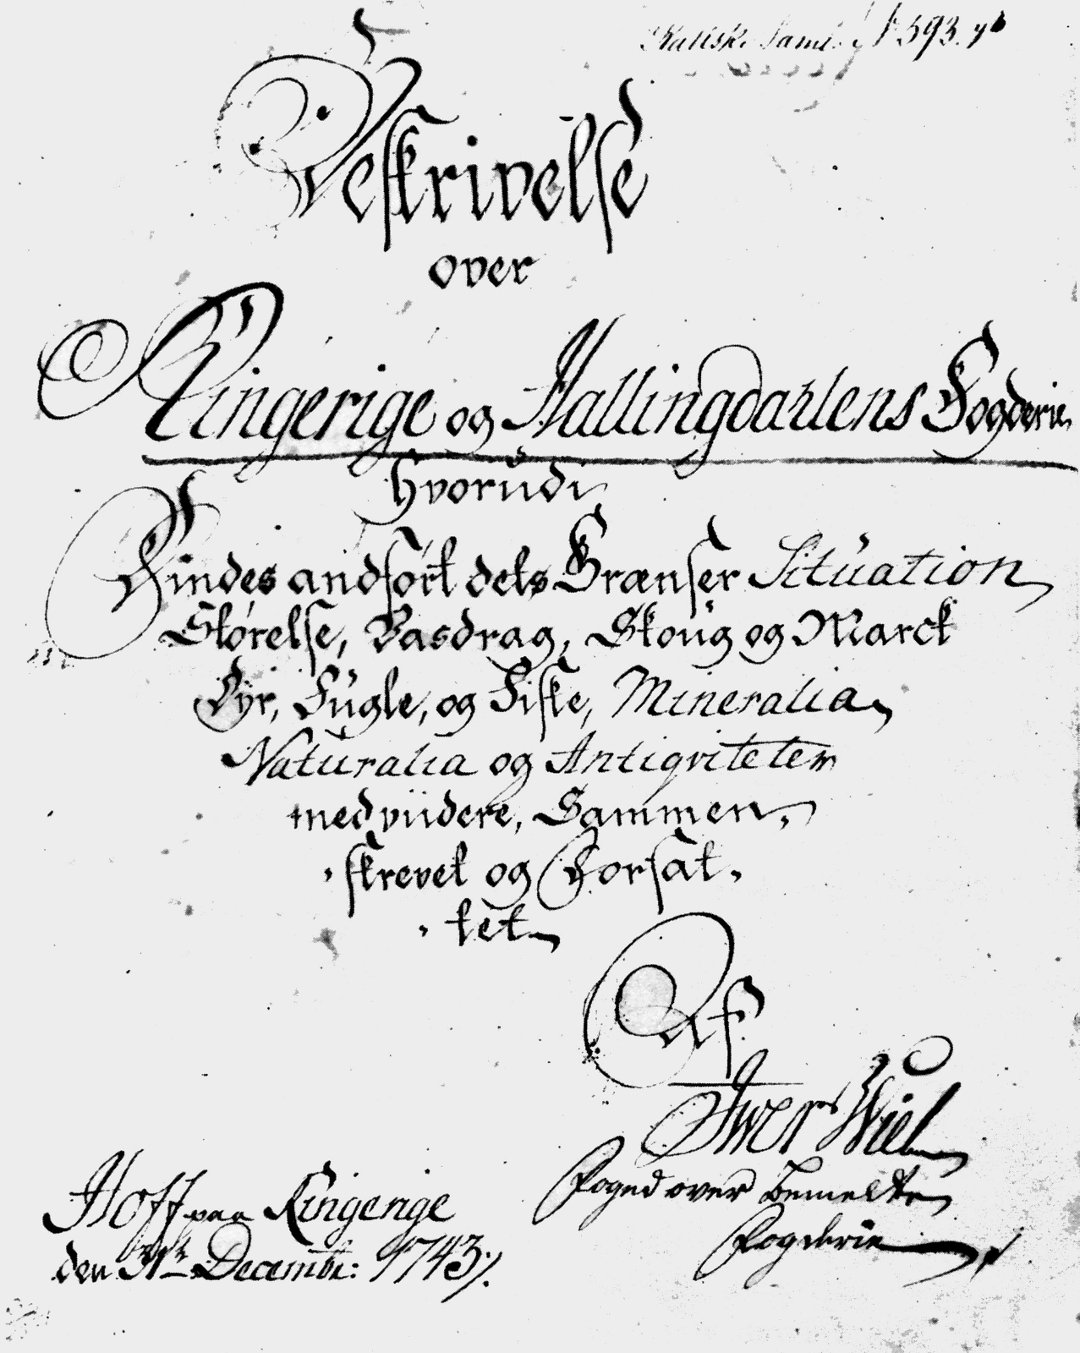 Kallske Saml. N 593. 4to
Beskrivelse
over
Ringerige og Hallingdahlens Fogderie
hvorudi
Findes andført dets Grænser Situation
Størelse, Vasdrag, Skoüg og Marck
Dÿr, Fügle, og Fiske, Mineralia
Naturalia og Antiqviteter
med viidere, Sammen-
skrevet og Forfat-
tet
Af
Iwer Wiel
Foged over bemelte
Fogderie
Hoff paa Ringerige
den 31te Decembr: 1743